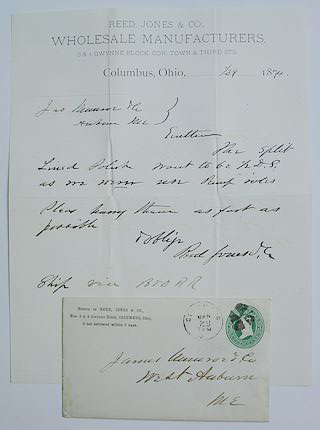 REED, JONES & CO.,
WHOLESALE MANUFACTURERS,
3 & 4 GWYNNE BLOCK, COR. TOWN & THIRD STS.
Columbus, Ohio, 187
Jas Munroe & Co
Auburn Me
The Split
Lined Polish want to be
as we never use
Please hurry them as fast as
possible
& oblige
Reed Jones & Co
Ship via B&O RR
Return to REED, JONES & CO.,
Nos. 3 & 4 Gwynne Block, COLUMBUS, Ohio,
If not delivered within 5 days.
James Munroe & Co
West Auburn
ME